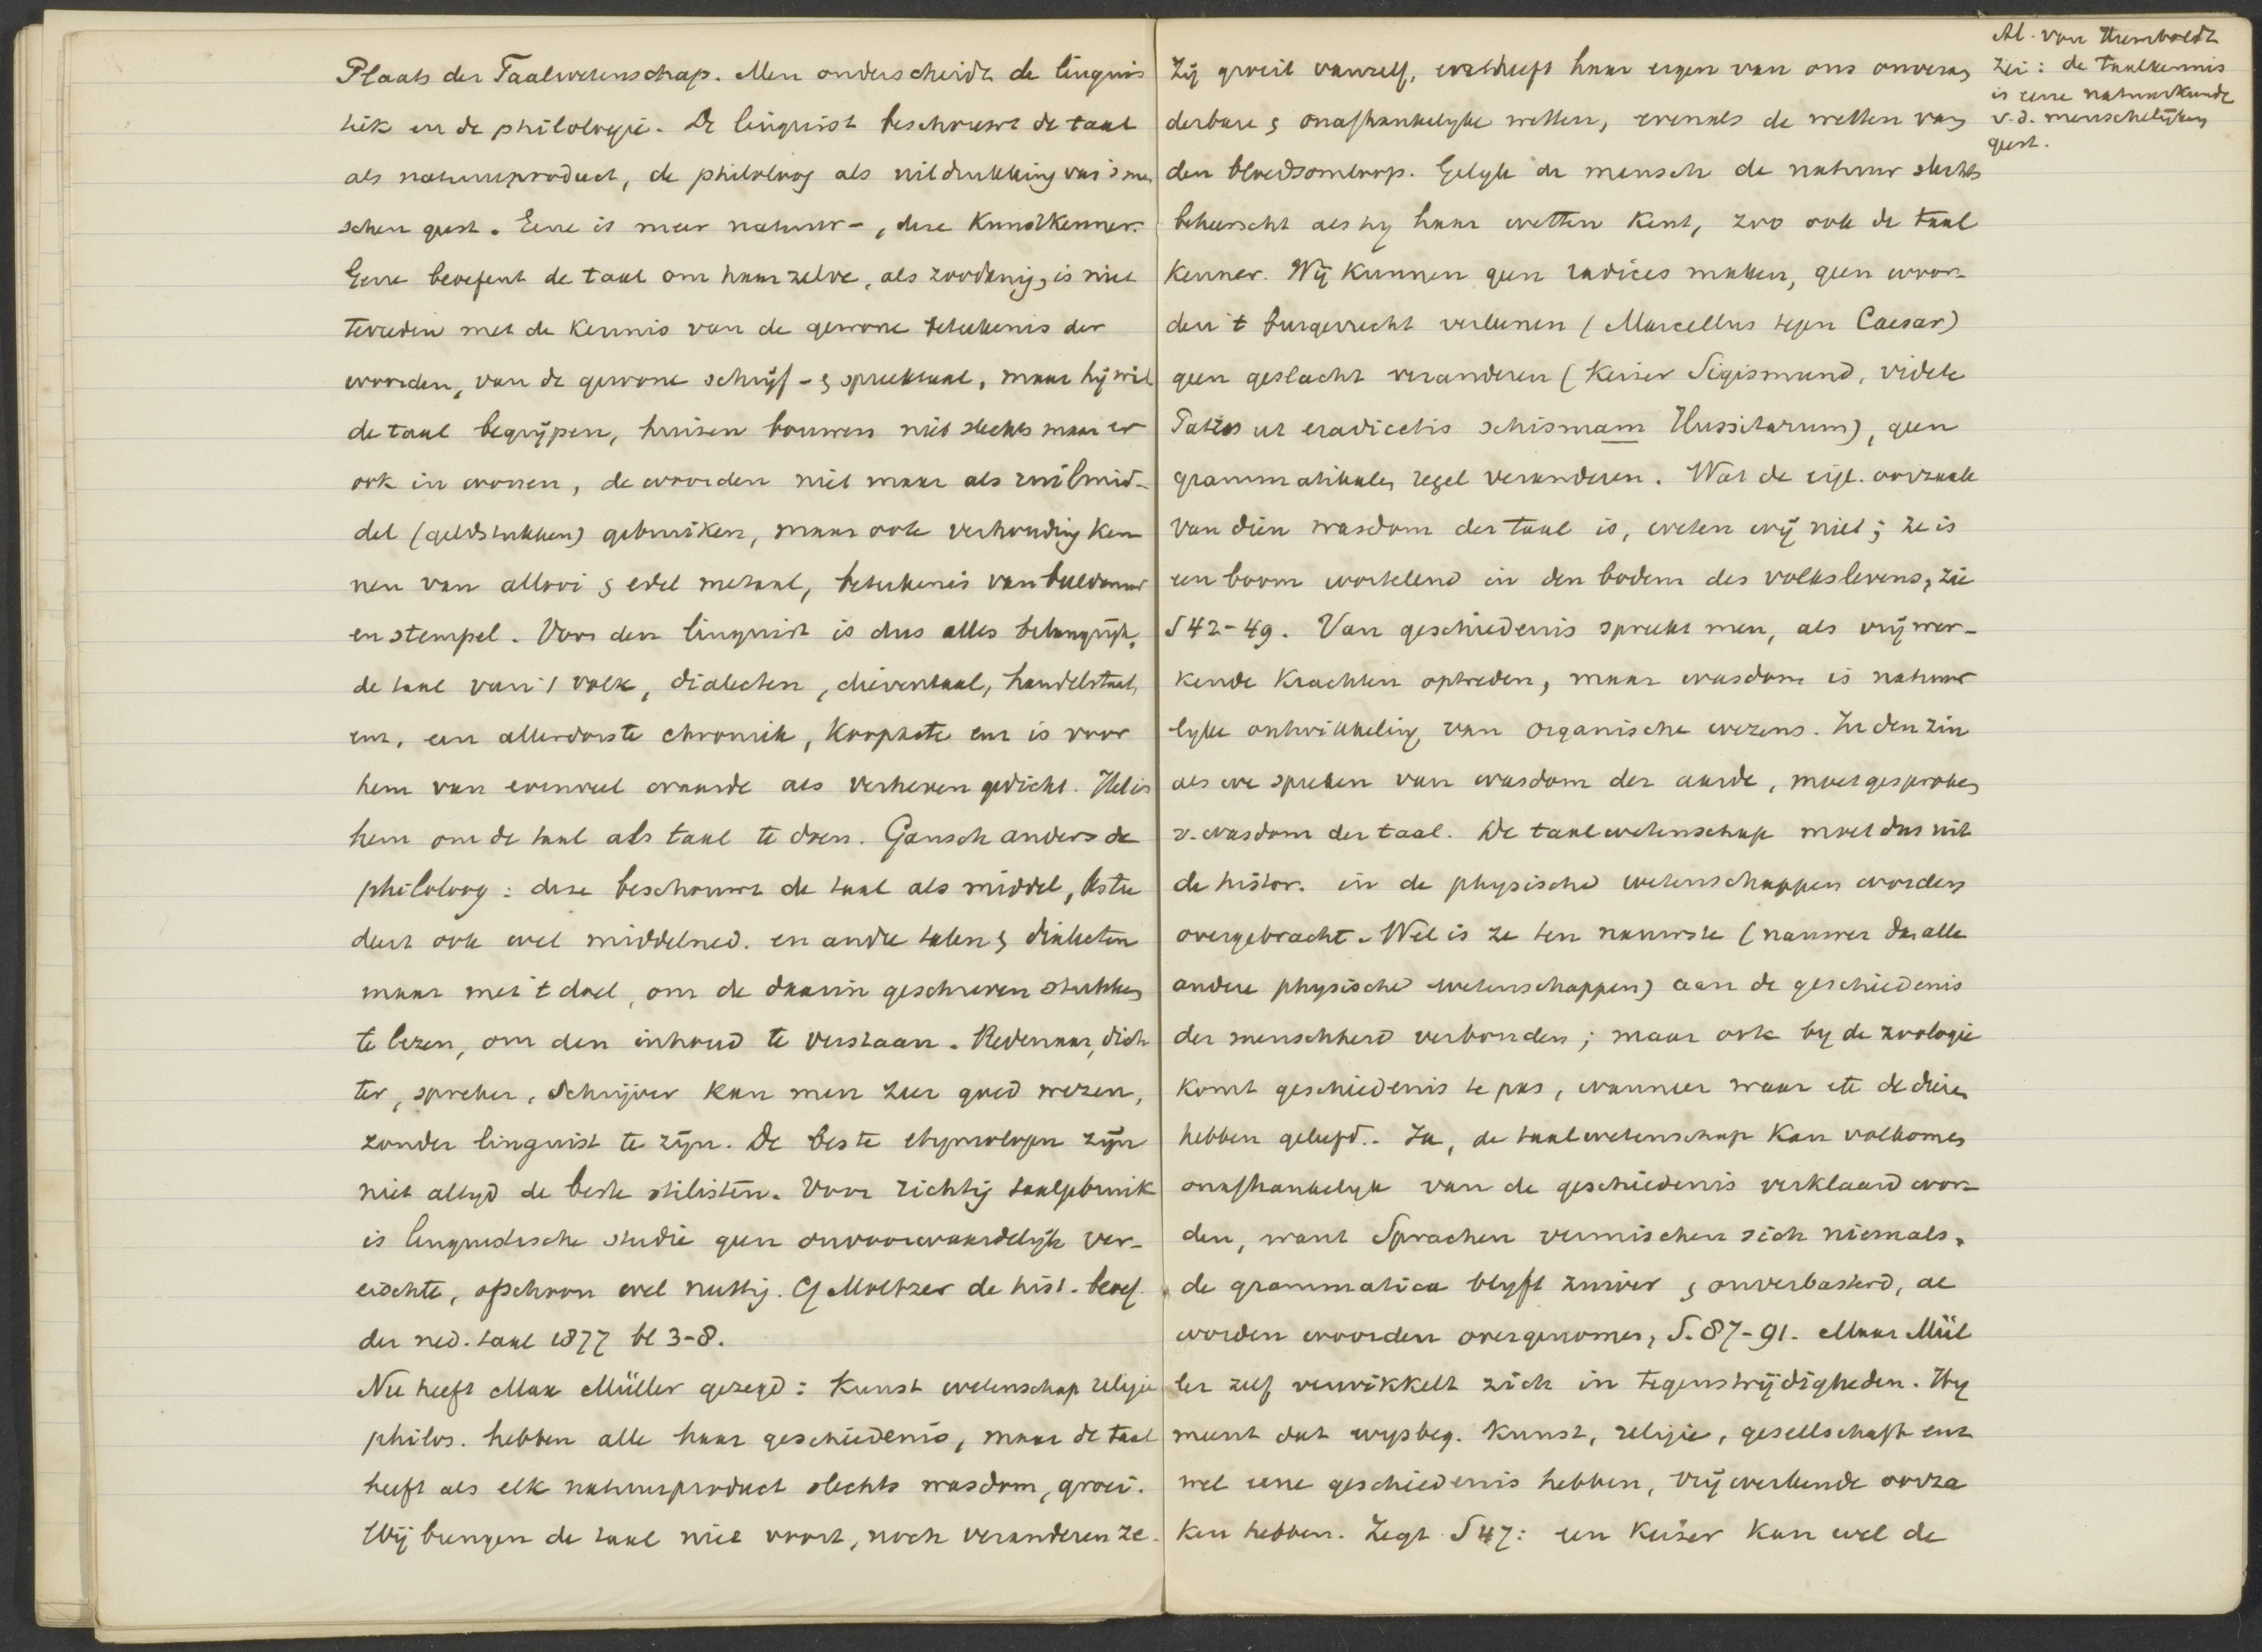 Plaats der Taalwetenschap. Men onderscheidt de linguis
tiek en de philologie. De linguist beschouwt de taal
als natuurproduct, de philoloog als uitdrukking van 's men
schen geest. Eene is meer natuur-, deze Kunstkenner.
Eene beoefent de taal om haar zelve, als zoodanig, is niet
tevreden met de Kennis van de gewone beteekenis der
woorden, van de gewone schrijf- & spreektaal, maar hij wil
de taal begrijpen, huizen bouwen niet slechts maar er
ook in wonen, de woorden niet maar als ruilmid-
del (geldstukken) gebruiken, maar ook verhouding Ken
nen van allooi & edel metaal, beteekenis van beeldenaar
en stempel. Voor den linguist is dus alles belangrijk,
de taal van 't volk, dialecten, dieventaal, handelstaal,
enz. een allerdorste chroniek, Koopacte enz is voor
hem van evenveel waarde als verheven gedicht. Het is
hem om de taal als taal te doen. Gansch anders de
philoloog: deze beschouwt de taal als middel, bstu
deert ook wel middelned. en andre talen & dialecten
maar met t doel, om de daarin geschreven stukken
te lezen, om den inhoud te verstaan. Redenaar, dich
ter, spreker, Schrijver kan men zeer goed wezen,
zonder linguist te zijn. De beste etymologen zijn
niet altyd de beste stilisten. Voor richtig taalgebruik
is linguistische studie geen onvoorwaardelijk ver-
eischte, ofschoon wel nuttig. Cf Moltzer de hist. beoef.
der ned. taal 1877 bl 3-8.
Nu heeft Max Müller gezegd: Kunst wetenschap religie
philos. hebben alle haar geschiedenis, maar de taal
heeft als elk natuurproduct slechts wasdom, groei.
Wij brengen de taal niet voort, noch veranderen ze.
Al. von Humboldt
zei: de taalkennis
is eene natuurkunde
v.d. menschelijken
geest.
Zij groeit vanzelf, heeft haar eigen van ons onveran
derbare & onafhankelyke wetten, evenals de wetten van
den bloedsomloop. Gelyk de mensch de natuur slechts
beheerscht als hy haar wetten kent, zoo ook de taal
kenner. Wij kunnen geen radices maken, geen woor-
den 't burgerrecht verleenen (Marcellus tegen Caesar)
geen geslacht veranderen (Keizer Sigismund, videte
Patres ut eradicetis schismam Hussitarum), geen
grammatikalen regel veranderen. Wat de eigl. oorzaak
van dien wasdom der taal is, weten wij niet; ze is
een boom wortelend in den bodem des volkslevens, zie
S 42-49. Van geschiedenis spreekt men, als vrij wer-
kende Krachten optreden, maar wasdom is natuur
lyke ontwikkeling van organische wezens. In den zin
als we spreken van wasdom der aarde, moet gesproken
v. wasdom der taal. De taalwetenschap moet dus uit
de histor. in de physische wetenschappen worden
overgebracht. Wel is ze ten nauwste (nauwer dan alle
andere physische wetenschappen) aan de geschiedenis
der menschheid verbonden; maar ook by de zoologie
komt geschiedenis te pas, wanneer waar etc de dieren
hebben geleefd. Ja, de taalwetenschap kan volkomen
onafhankelyk van de geschiedenis verklaard wor-
den, want Sprachen vermischen sich niemals,
de grammatica blyft zuiver & onverbasterd, al
worden woorden overgenomen, S. 87-91. Maar Mül
ler zelf verwikkelt zich in tegenstrijdigheden. Hy
meent dat wysbeg. Kunst, religie, gesellschaft enz
wel eene geschiedenis hebben, vrij werkende oorza
ken hebben. Zegt S 47: een Keizer kan wel de